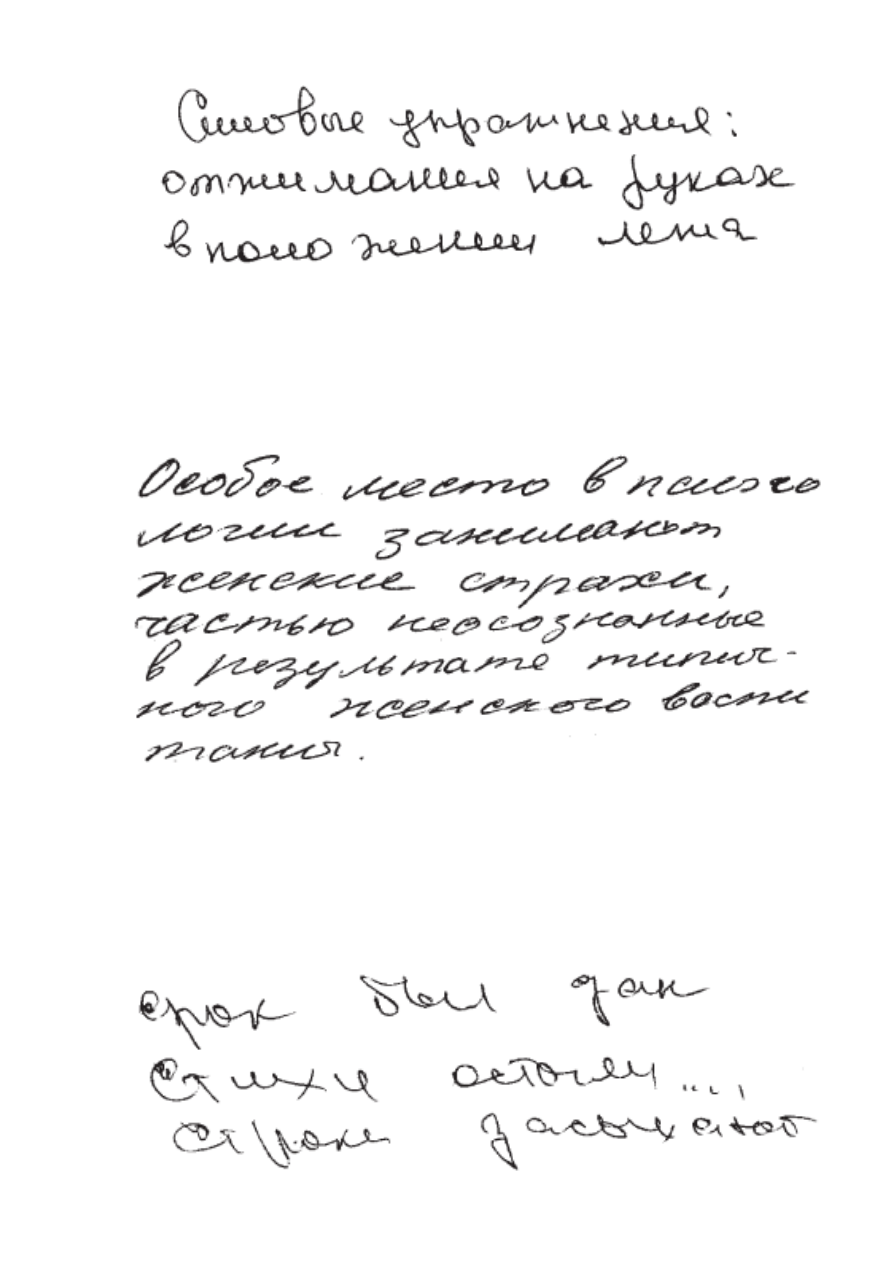 Силовые упражнения:
отжимания на руках
в положении лежа
Особое место в психо
логии занимают
женские страхи,
частью неосознанные
в результате типич-
ного женского воспи
тания.
срок был дан
Стихи остыли....
Строки засыхают